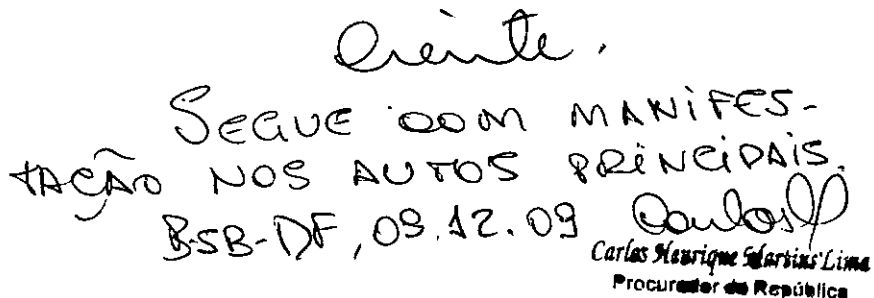 Ciente.
SEGUE COM MANIFES-
TAÇÃO NOS AUTOS PRINCIPAIS.
BSB-DF, 09.12.09 Carlos
Carlos Henrique Martins Lima
Procurador da República